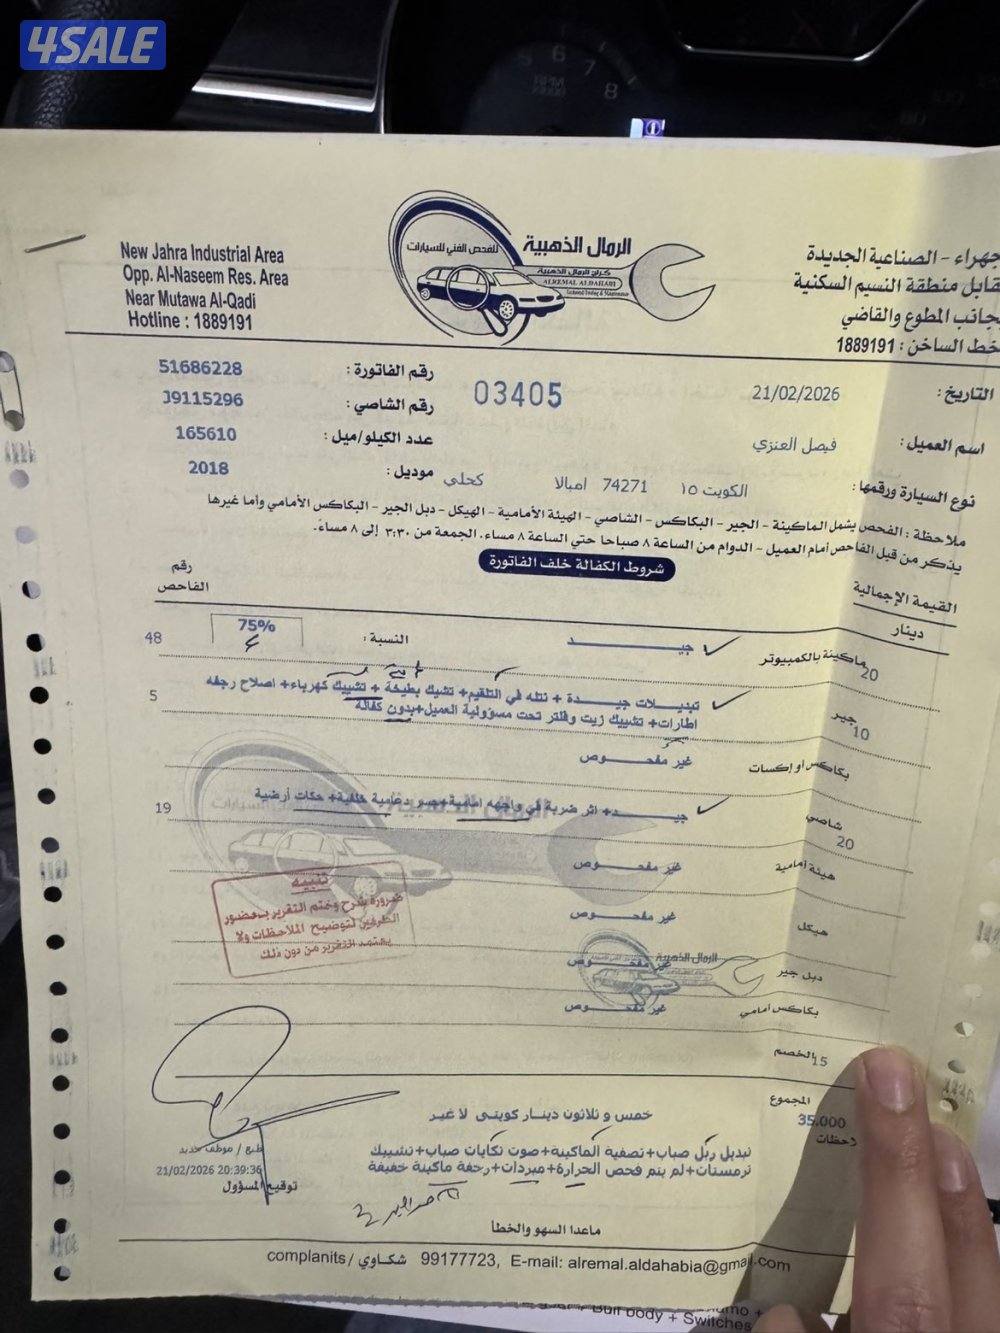 4SALE
New Jahra Industrial Area
Opp. Al-Naseem Res. Area
Near Mutawa Al-Qadi
Hotline : 1889191
الرمال الذهبية
للفحص الفني للسيارات
كراج الرمال الذهبية
ALREMAL ALDAHABI
Technical Testing & Maintenance
جهراء - الصناعية الجديدة
قابل منطقة النسيم السكنية
بجانب المطوع والقاضي
خط الساخن : 1889191
التاريخ : 21/02/2026
03405
رقم الفاتورة : 51686228
رقم الشاصي : J9115296
اسم العميل : فيصل العنزي
عدد الكيلو/ميل : 165610
نوع السيارة ورقمها : الكويت ١٥ 74271 امبالا كحلي
موديل : 2018
ملاحظة : الفحص يشمل الماكينة - الجير - البكاكس - الشاصي - الهيئة الأمامية - الهيكل - دبل الجير - البكاكس الأمامي وأما غيرها
يذكر من قبل الفاحص أمام العميل - الدوام من الساعة ٨ صباحا حتي الساعة ٨ مساء. الجمعة من ٣:٣٠ إلى ٨ مساءً.
شروط الكفالة خلف الفاتورة
القيمة الإجمالية
دينار
رقم
الفاحص
ماكينة بالكمبيوتر 20 جيـــد النسبة : 75% 48
جير 10 تبديلات جيدة + نتله في التلقيم+ تشيك بطيخة + تشييك كهرباء+ اصلاح رجفه 5
اطارات+ تشييك زيت وفلتر تحت مسؤولية العميل+بدون كفالة
بكاكس أو إكسات غير مفحوص
شاصي 20 جيـــد+ اثر ضربة في واجهه امامية+جسر دعامية خلفية+ حكات أرضية 19
هيئة أمامية غير مفحوص
هيكل غير مفحوص
دبل جير غير مفحوص
بكاكس أمامي غير مفحوص
تنبيه
ضرورة شرح وختم التقرير بحضور
الطرفين لتوضيح الملاحظات ولا
يعتمد التقرير من دون ذلك
الخصم 15
المجموع 35.000
خمس و ثلاثون دينار كويتي لا غير
لاحظات
تبديل ربل صباب+ تصفية الماكينة+صوت تكايات صباب+تشييك
ترمستات+لم يتم فحص الحرارة+مبردات+رجفة ماكينة خفيفة
طبع / موظف جديد
21/02/2026 20:39:36
توقيع المسؤول
ماعدا السهو والخطأ
complanits / شكاوي 99177723, E-mail: alremal.aldahabia@gmail.com
Bull body + Switches